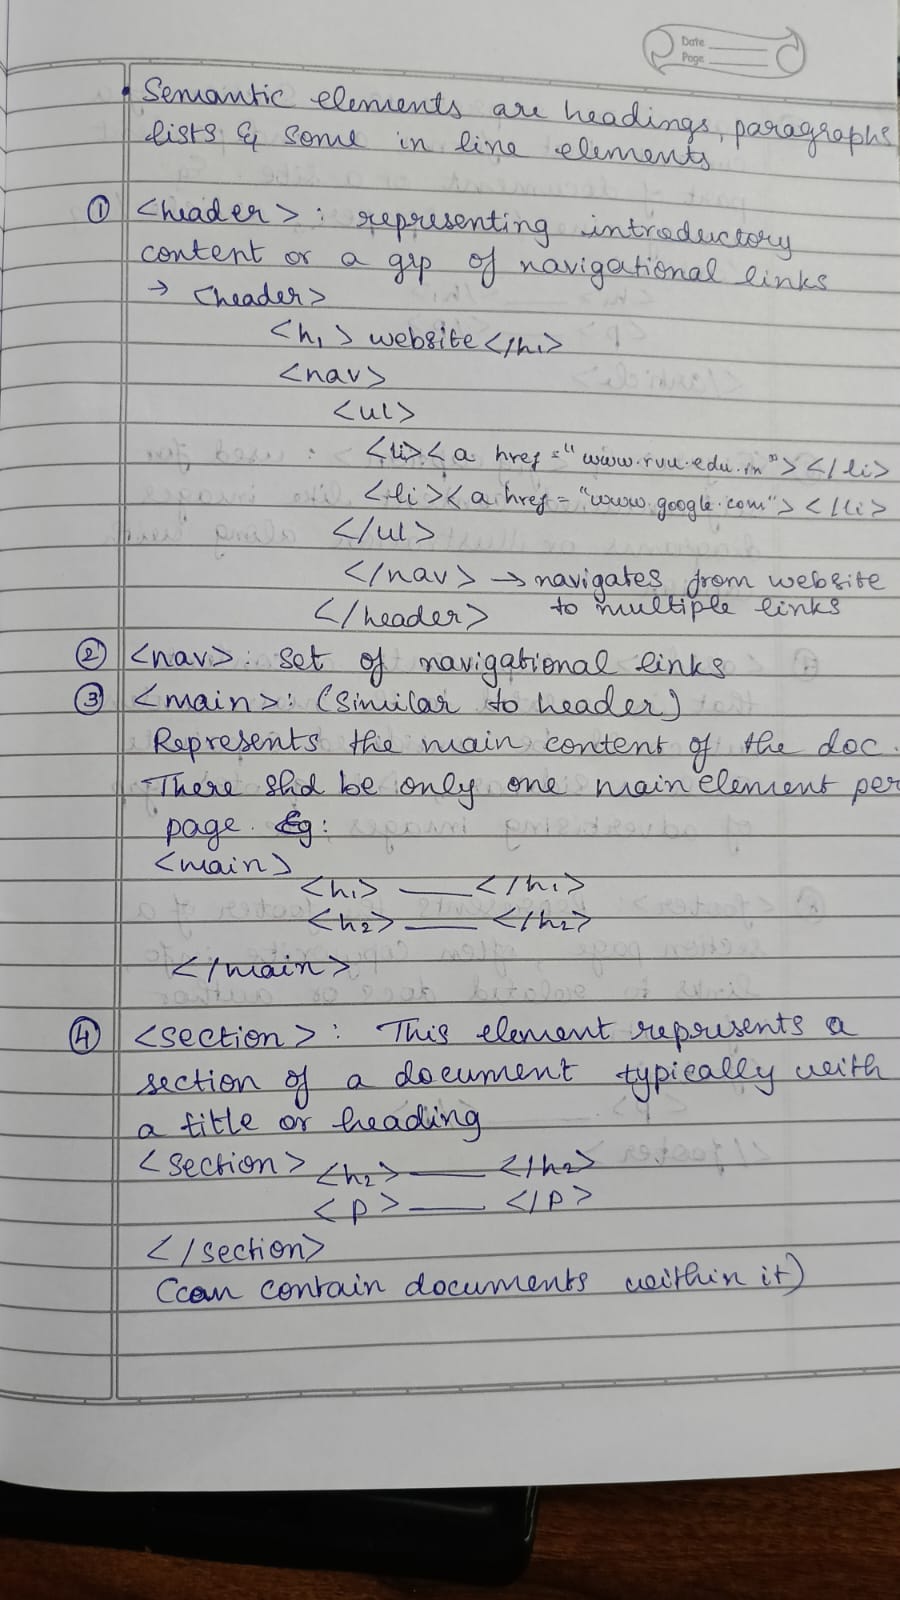 Date
Page
• Semantic elements are headings, paragraphs
lists & some in line elements
① <header> : representing introductory
content or a grp of navigational links
→ <header>
<h1> website </h1>
<nav>
<ul>
<li><a href="www.rvu.edu.in"></li>
<li><a href="www.google.com"></li>
</ul>
</nav> → navigates from website
</header> to multiple links
② <nav>: set of navigational links
③ <main>: (similar to header)
Represents the main content of the doc.
There shd be only one main element per
page. Eg:
<main>
<h1> —— </h1>
<h2> —— </h2>
</main>
④ <section> : This element represents a
section of a document typically with
a title or heading
<section> <h2> —— </h2>
<p> —— </p>
</section>
(can contain documents within it)